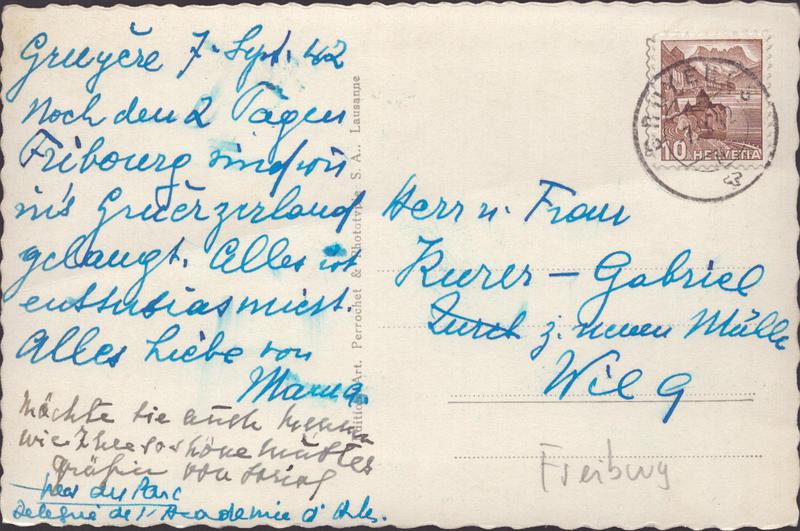 Gruyére 7. Sept. 42
Noch den 2 Tagen
Fribourg sind wir
in's Gruérzerland
gelangt. Alles ist
enthusiasmiert.
Alles Liebe von
Mama.
Möchte Sie auch kennen
wie Ihre schöne
gräfin von
du Parc
Delegué de l'Academie d'Arles.
Edition Art. Perrochet & Phototypie S. A., Lausanne
10 HELVETIA
Herr u. Frau
Kurer – Gabriel
Zürich z. neuen Mühle
Wil
Freiburg